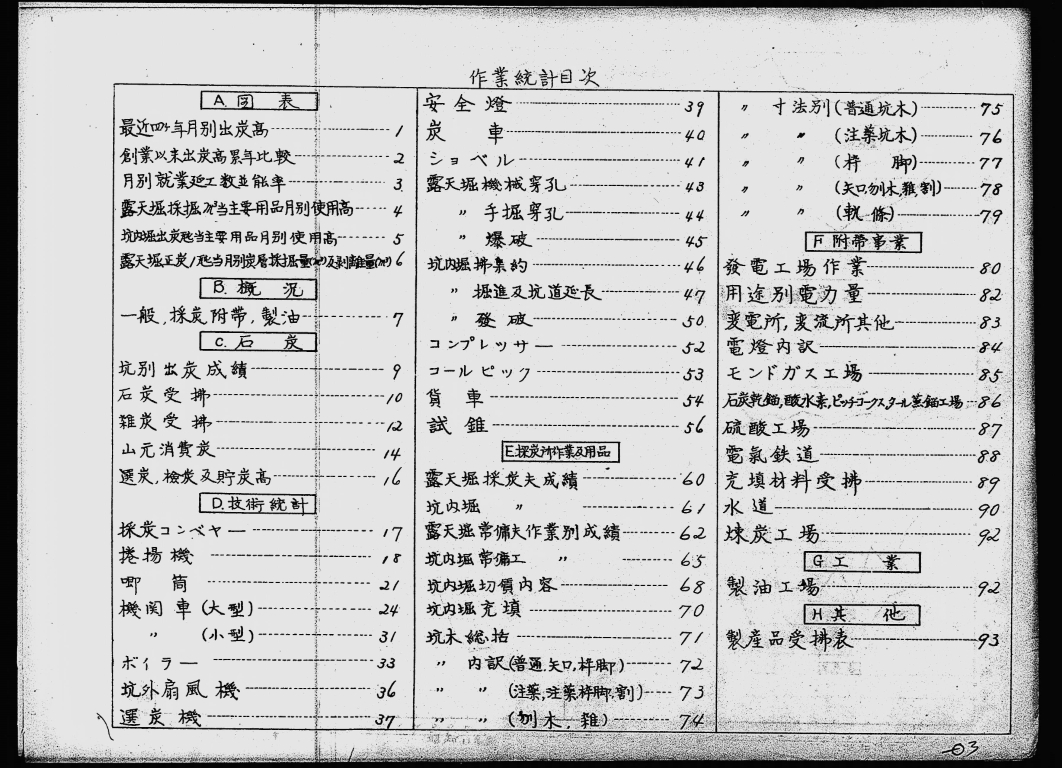 作業統計目次
A. 図 表
最近四ヶ年月別出炭高 1
創業以来出炭高累年比較 2
月別就業延工数並能率 3
露天堀採掘㎥当主要用品月別使用高 4
坑内堀出炭瓲当主要用品月別使用高 5
露天堀正炭1瓲当月別炭層採掘量(㎥)及剥離量(㎥) 6
B. 概 況
一般, 採炭附帶, 製油 7
C. 石 炭
坑別出炭成績 9
石炭受拂 10
雑炭受拂 12
山元消費炭 14
選炭, 檢炭及貯炭高 16
D. 技術統計
採炭コンベヤー 17
捲揚機 18
喞筒 21
機関車(大型) 24
〃 (小型) 31
ボイラー 33
坑外扇風機 36
選炭機 37
安全燈 39
炭車 40
ショベル 41
露天堀機械穿孔 43
〃 手掘穿孔 44
〃 爆破 45
坑内堀拂集約 46
〃 掘進及坑道延長 47
〃 發破 50
コンプレッサー 52
コールピック 53
貨車 54
試錐 56
E. 採炭所作業及用品
露天堀採炭夫成績 60
坑内堀 〃 61
露天堀常傭夫作業別成績 62
坑内堀常傭工 〃 65
坑内堀切賃内容 68
坑内堀充填 70
坑木総括 71
〃 内訳(普通, 矢口, 枠脚) 72
〃 〃 (注薬, 注薬枠脚, 割) 73
〃 〃 (刎木, 雜) 74
〃 寸法別(普通坑木) 75
〃 〃 (注薬坑木) 76
〃 〃 (枠 脚) 77
〃 〃 (矢口, 刎木, 雜, 割) 78
〃 〃 (軌條) 79
F 附帶事業
發電工場作業 80
用途別電力量 82
変電所, 変流所其他 83
電燈内訳 84
モンドガス工場 85
石炭乾餾, 酸水素, ピッチコークス, タール蒸餾工場 86
硫酸工場 87
電氣鉄道 88
充填材料受拂 89
水道 90
煉炭工場 92
G 工 業
製油工場 92
H. 其 他
製產品受拂表 93
03